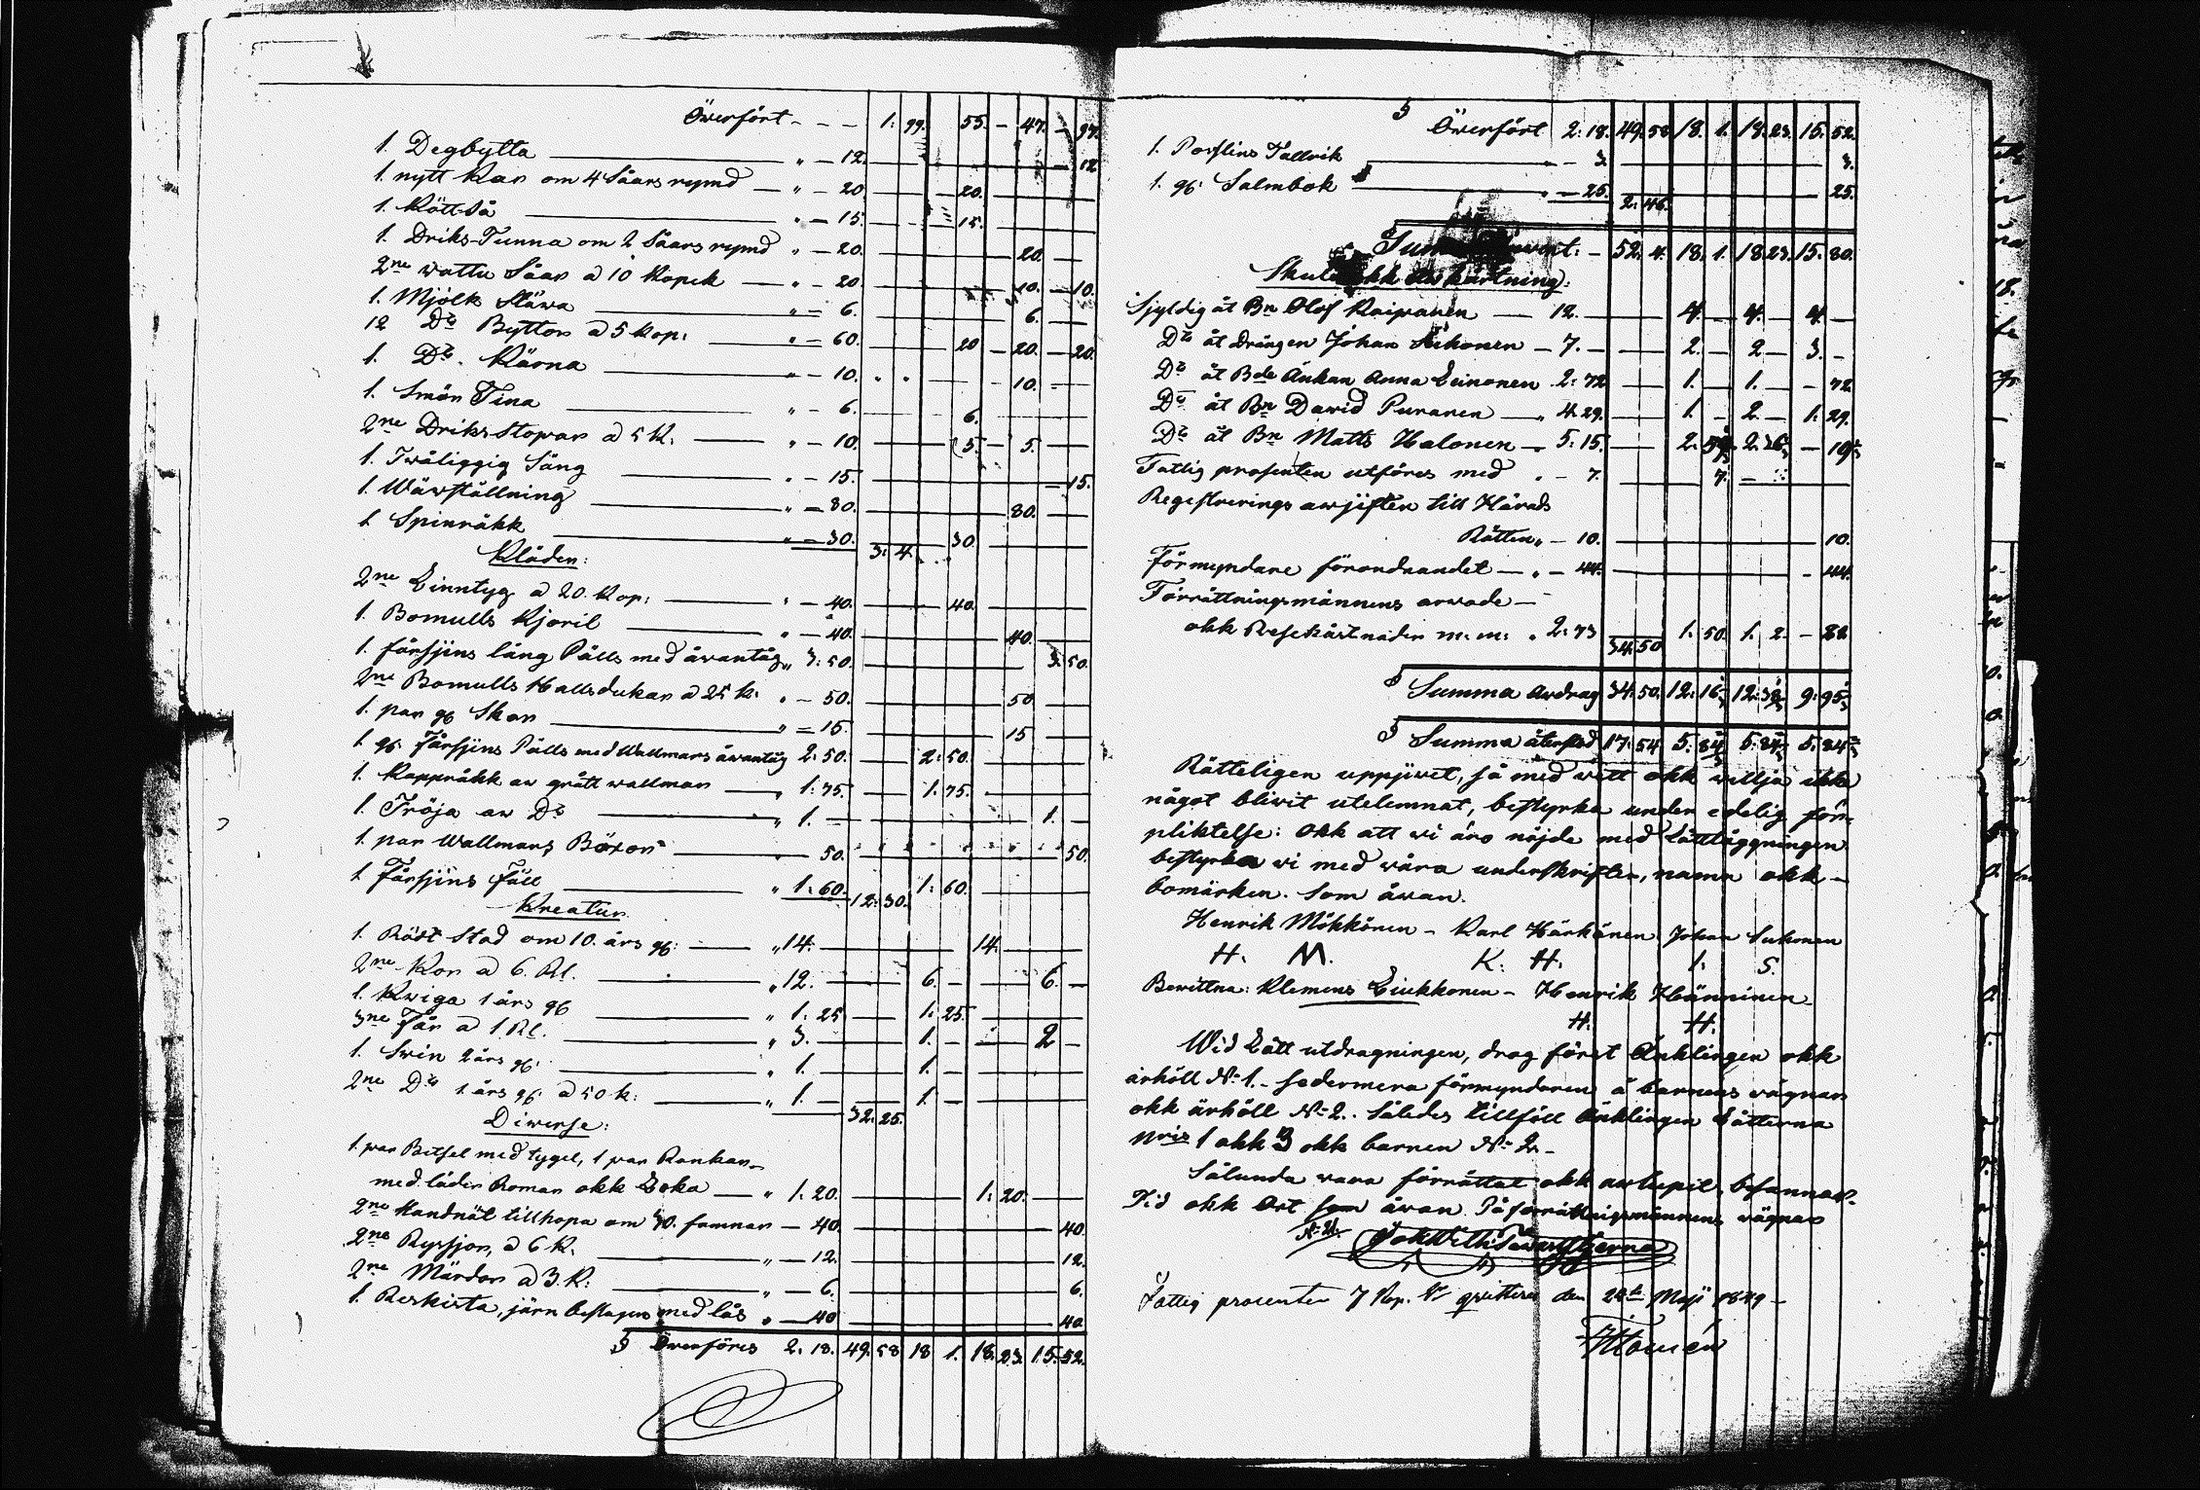 Öwerfört - - - 1: 99. 55. - 47. - 97.
1. Degbytta " - 12. 12
1. nytt Kar om 4 Såars rymd - " - 20 20.
1. Kött-Så " - 15. 15.
1. Driks-Tunna om 2 Såars rymd " - 20. 20.
2ne wattu Såar a 10 Kopek - " - 20. 10. - 10.
1. Mjölk Stäwa " - 6. 6.
12 Do Byttor a 5 Kop: " - 60. 20 - 20. - 20.
1. Do. Kärna " - 10. 10.
1. Smör Tina " - 6. 6.
2ne Driks-Stopar a 5 K: " - 10. 5. - 5.
1. Twåliggig Säng " - 15. 15.
1. Wäwställning " - 80. 80.
1. Spinråkk " - 30. 3: 4. 30
Kläden:
2ne Linntyg a 20. Kop: " - 40. 40.
1. Bomulls Kjoril " - 40. 40.
1. fårsjins lång Pälls med åwantåg " 3: 50. 3: 50.
2ne Bomulls Hallsdukar a 25 K: " - 50. 50.
1. par gb Skor " - 15. 15
1. gb. Fårsjins Pälls med Wallmars åwantåg 2: 50. 2: 50.
1. Kappråkk aw grått wallmar " 1: 75. 1: 75.
1. Tröja aw Do " 1. - 1. -
1. par Wallmars Böxor 50. 50.
1. Fårsjins Fäll " 1: 60. 12: 30. 1: 60.
Kreatur
1. Rödt Stod om 10. års gb: " 14. 14.
2ne Kor a 6. Rl. " 12. 6. - 6. -
1. Kwiga 1 års gb " 1: 25 1: 25.
3ne Får a 1. Rl. " 3. 1. - 2 -
1. Swin 2 års gb: " 1. 1. -
2ne Do 1 års gb: a 50 k: " 1. - 32: 25. 1. -
Diwerse:
1 par Betsel med tygel, 1 par Rankar
med läder Roman okk Loka - " 1: 20. 1: 20.
2ne Handnät tillhopa om 70. famnar - 40. 40.
2ne Ryssjor, a 6 K. " - 12. 12.
2ne Märdar a 3. K: " - 6. 6.
1. Reskista, järn beslagen med lås " - 40 40.
§ Öwerföres 2. 18. 49. 58 18 1. 18. 23. 15. 52.
§ Öwerfört 2: 18. 49. 58 18. 1. 18. 23. 15. 52.
1. Porslins Tallrik - 3. 3.
1. gb: Salmbok " - 25. 2: 46. 25.
52. 4. 18. 1. 18. 23. 15. 80.
Sjyldig åt Bn Olof Raiwanen - 12. 4. - 4. - 4. -
Do åt Drängen Johan Sikonen - 7. - 2. - 2 - 3. -
Do åt Bde Änkan Anna Leinonen 2: 72 1. - 1. - - 72.
Do åt Bn Dawid Puranen - " 4. 29. 1. - 2. - 1. 29.
Do åt Bn Matts Halonen - " 5: 15.
Fattig prosenten utföres med " - 7. 7.
Regestrerings awjiften till Härads
Rätten " - 10. 10.
Förmyndare förordnandet - " - 44. - 44.
Förrättningsmännens arwode -
okk Resekåstnader m: m: " 2: 73 34. 50 1: 50. 1. 2. -
§ Summa Awdrag 34. 50.
§ Summa återstod 17: 54
Rätteligen uppjiwet, så med wett okk willja ikke
något bliwit utelemnat, bestyrkes under edelig för-
pliktelse: Okk att wi äro nöjde med Låttläggningen
bestyrka wi med wåra underskrifter, namn okk -
bomärken. Som åwan.
Henrik Mökkönen - Karl Härkönen Johan Sukonen
H. M. K. H. I. S.
Bewittna: Klemens Leinkkonen - Henrik Hänninen
H. H.
Wid Lått utdragningen, drog först Änklingen okk
ärhöll No 1. - sedermera förmyndaren å barnens wägnar
okk ärhöll No 2. Således tillföll Änklingen Låtterna
Nris 1 okk 3 okk barnen No 2 -
Sålunda wara förrättat okk awlupit, befannas.
Tid okk Ort som åwan. På förrättningsmännens wägnar
Fattig procenten 7 Kop. Sr qvitteras den 24de Maji 1849 -